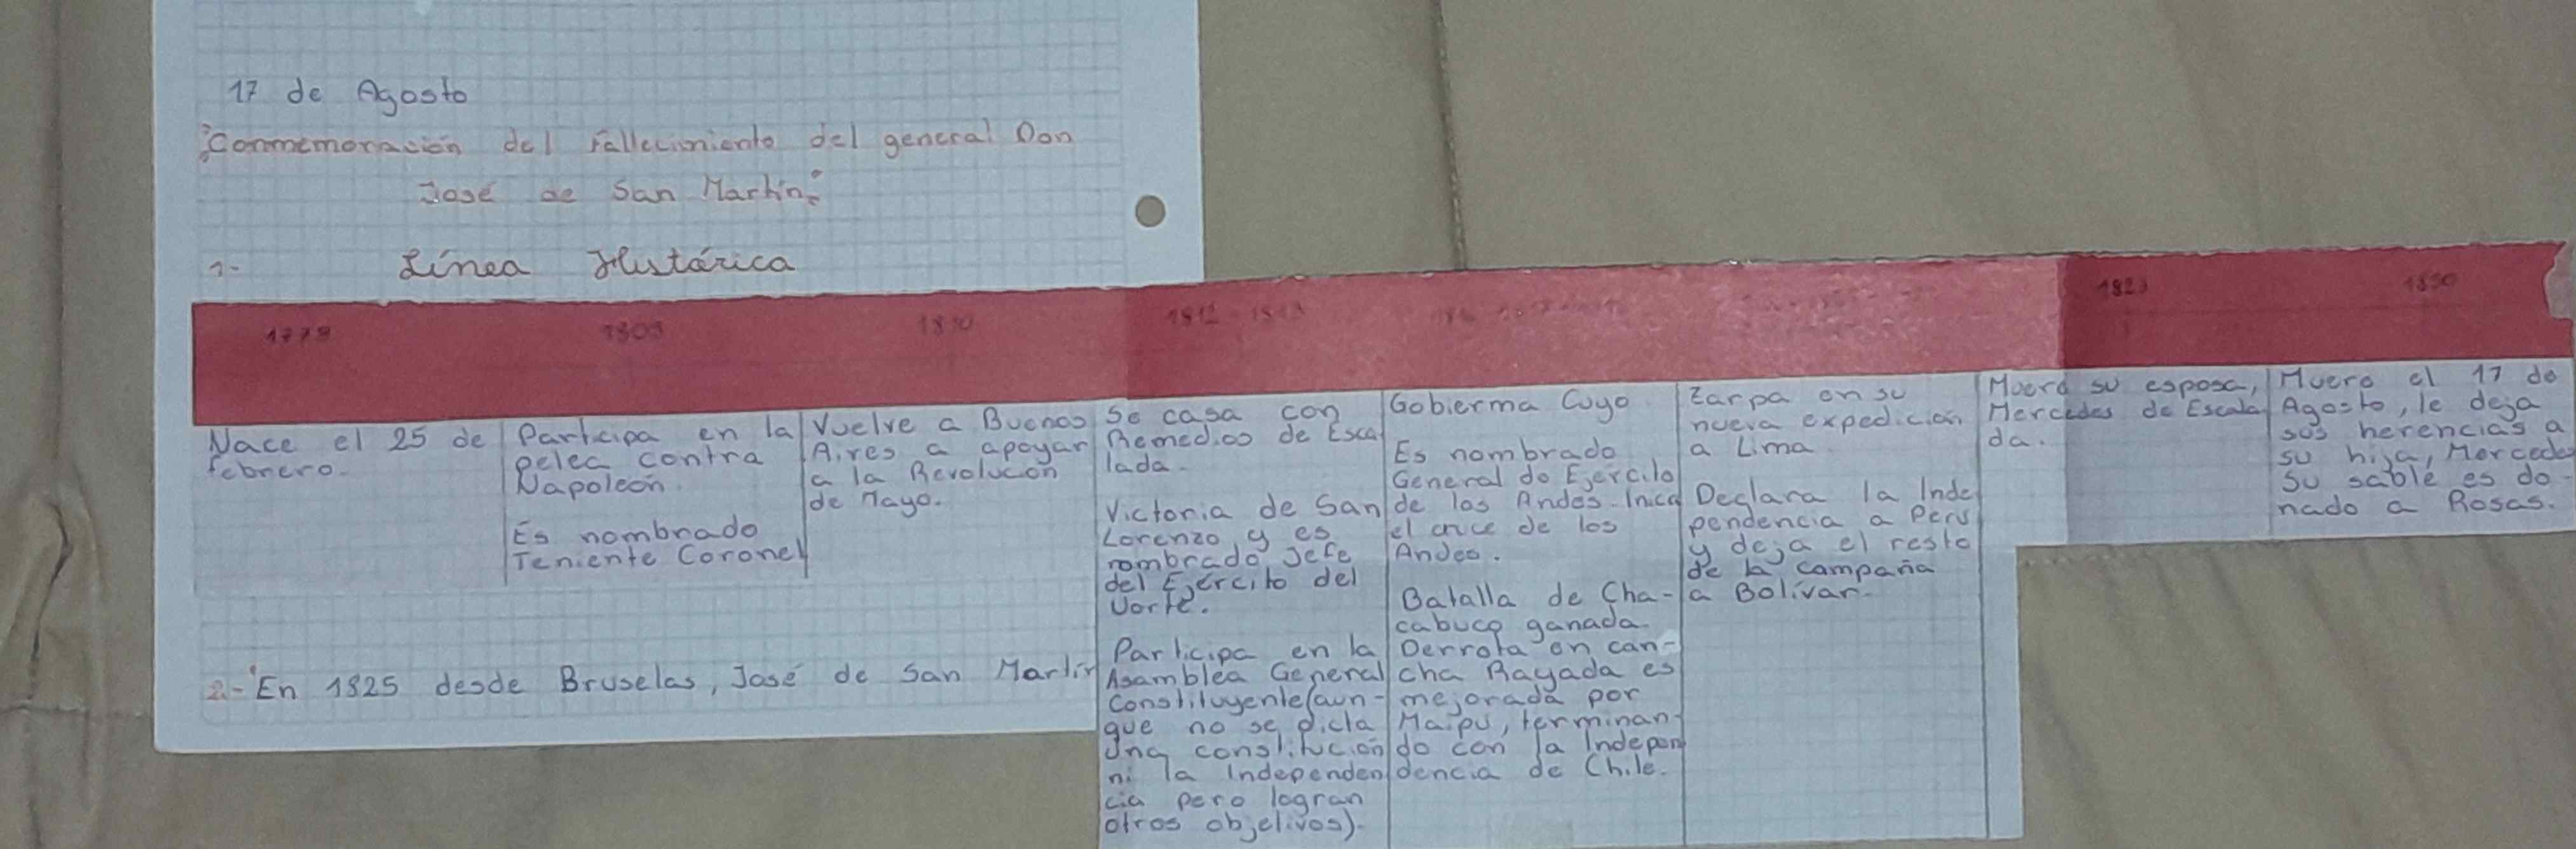 17 de Agosto
"Conmemoración del Fallecimiento del general Don
José de San Martín"
1- Línea Histórica
1778 1808 1810 1812 - 1813 1823 1850
Nace el 25 de
febrero.
Participa en la
pelea contra
Napoleón.
Es nombrado
Teniente Coronel
Vuelve a Buenos
Aires a apoyar
a la Revolucón
de Mayo.
Se casa con
Remedios de Esca
lada.
Victoria de San
Lorenzo y es
nombrado Jefe
del Ejército del
Norte.
Participa en la
Asamblea General
Constituyente (aun-
que no se dicta
una constitución
ni la Independen
cia pero logran
otros objetivos).
Gobierma Cuyo
Es nombrado
General de Ejercito
de los Andes. Inica
el cruce de los
Andes.
Batalla de Cha-
cabuco ganada.
Derrota en can-
cha Rayada es
mejorada por
Maipú, terminan-
do con la Indepen
dencia de Chile.
Zarpa en su
nueva expedición
a Lima
Declara la Inde
pendencia a Perú
y deja el resto
de la campaña
a Bolívar.
Muere su esposa,
Mercedes de Escala
da.
Muere el 17 de
Agosto, le deja
sus herencias a
su hija, Mercedes
Su sable es do-
nado a Rosas.
2- En 1825 desde Bruselas, José de San Martín